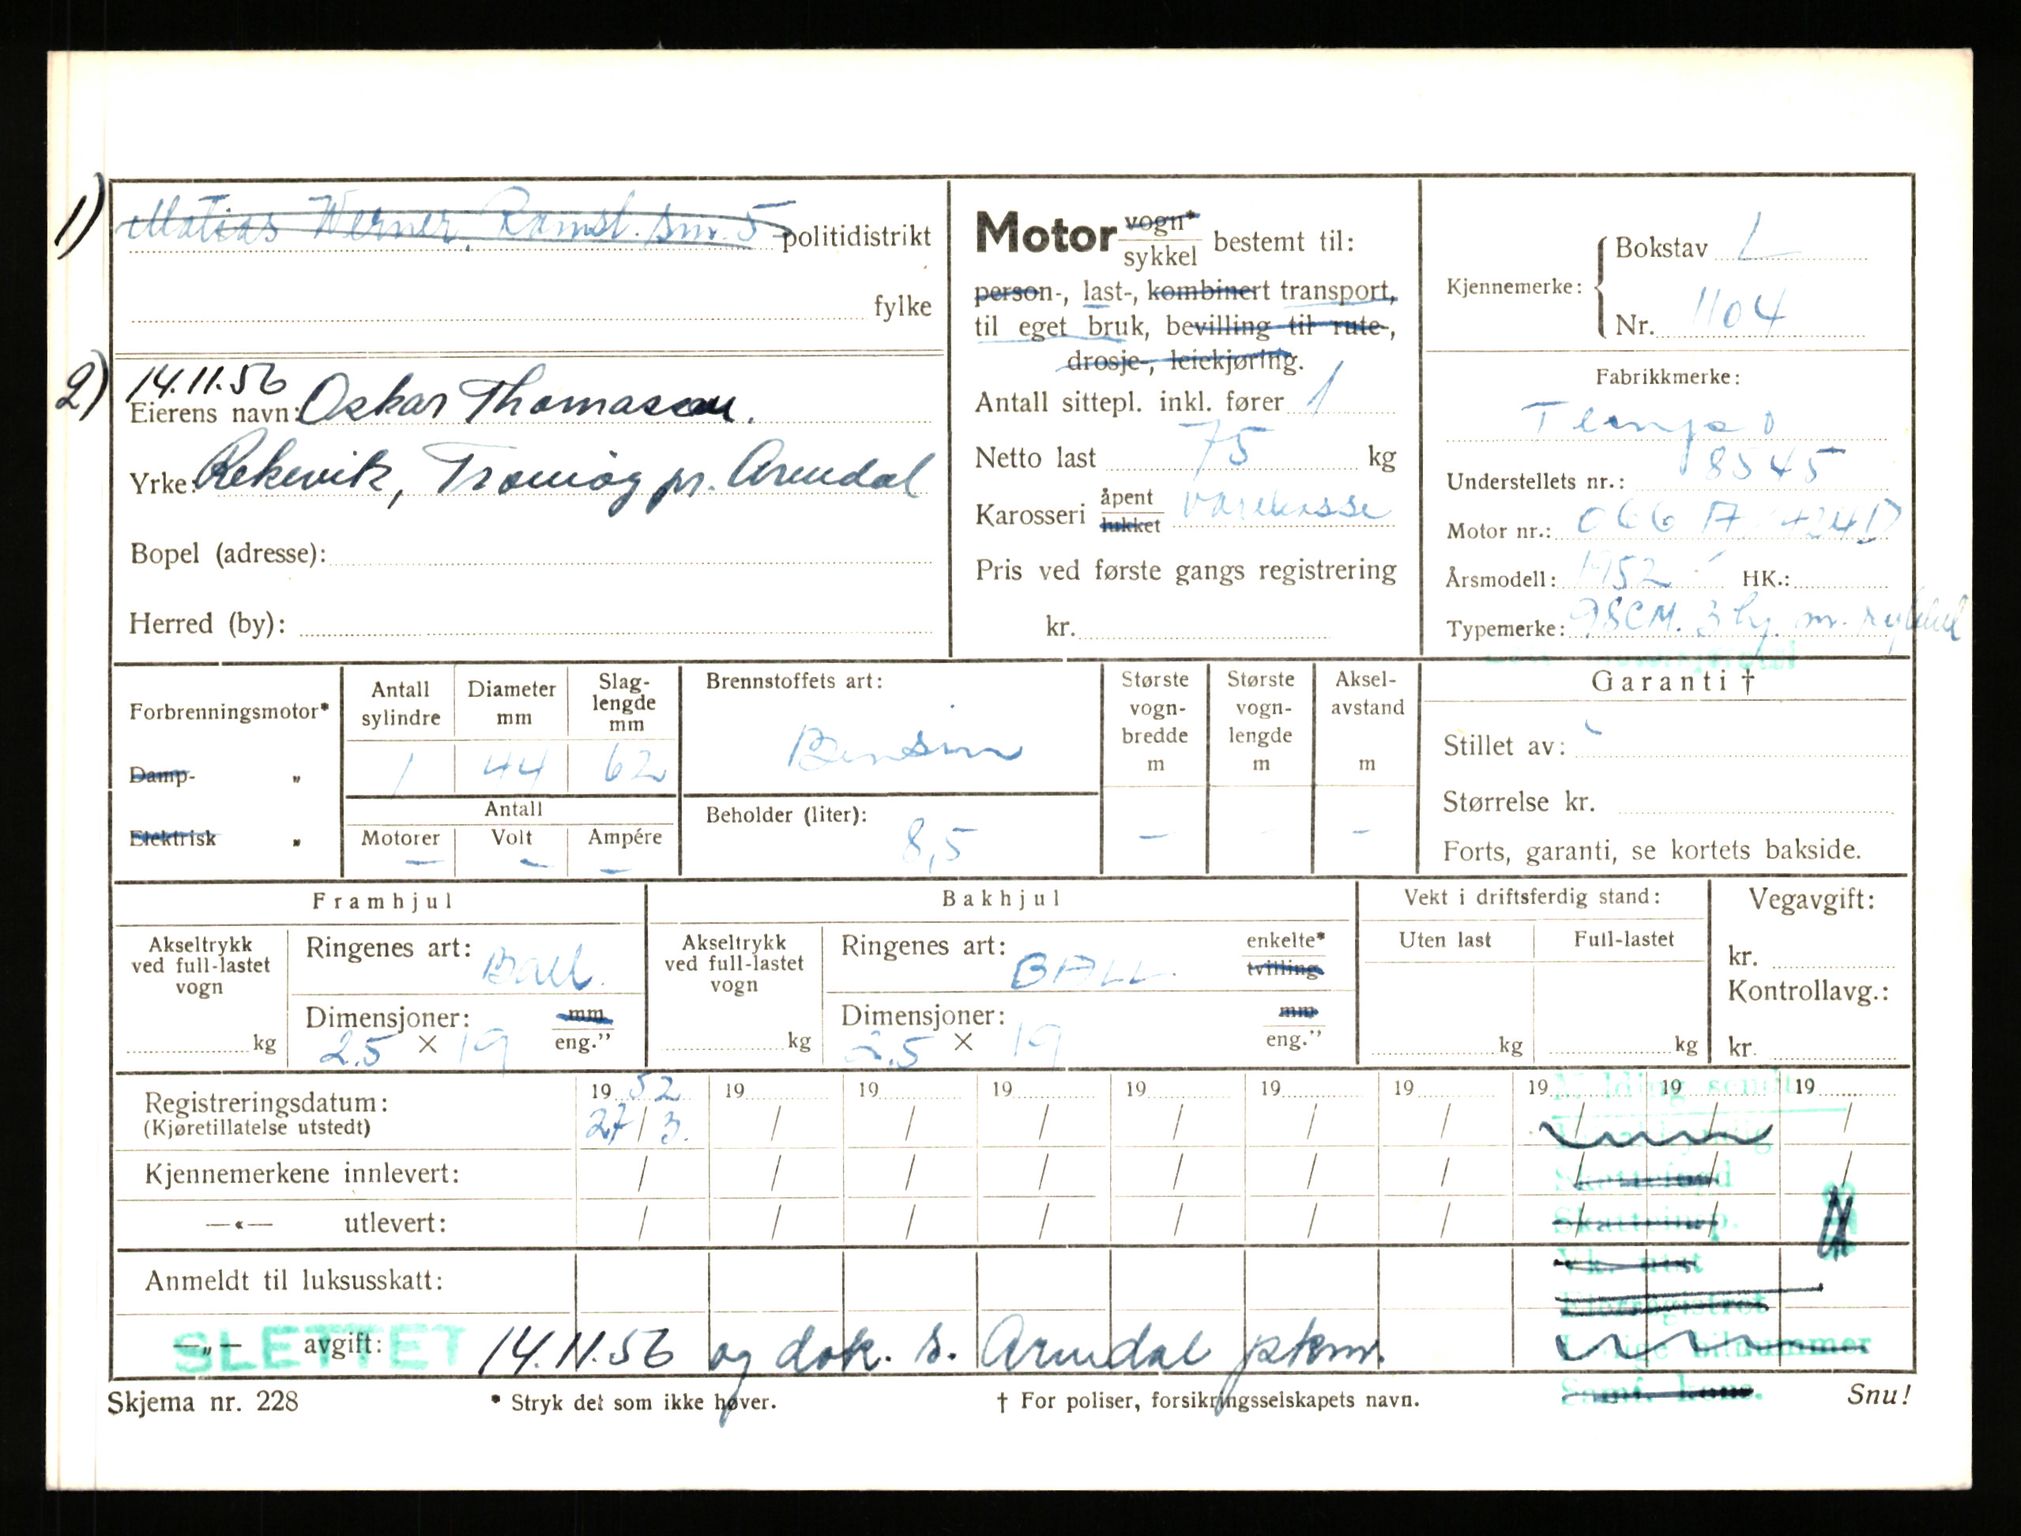 1) Matias Werner, Ramsl. sm. 5 politidistrikt
fylke
2) 14.11.56
Eierens navn: Oskar Thomassen.
Yrke: Rekevik, Tromøy pr. Arendal
Bopel (adresse):
Herred (by):
Motor vogn* sykkel bestemt til:
person-, last-, kombinert transport,
til eget bruk, bevilling til rute-,
drosje-, leiekjøring.
Antall sittepl. inkl. fører 1
Netto last 75 kg
Karosseri åpent lukket varekasse
Pris ved første gangs registrering
kr.
Kjennemerke: Bokstav L
Nr. 1104
Fabrikkmerke:
Tempo
Understellets nr.: 8545
Motor nr.:
Årsmodell: 1952 HK.:
Typemerke: 98CM. 3 hj. m.
Forbrenningsmotor*
Damp- „
Elektrisk „
Antall sylindre 1
Diameter mm 44
Slag-lengde mm 62
Antall
Motorer — Volt — Ampére —
Brennstoffets art:
Bensin
Beholder (liter): 8,5
Største vogn-bredde m —
Største vogn-lengde m
Aksel-avstand m —
Garanti †
Stillet av:
Størrelse kr.
Forts, garanti, se kortets bakside.
Framhjul
Akseltrykk ved full-lastet vogn kg
Ringenes art: Ball.
Dimensjoner: mm
2.5 × 19 eng.”
Bakhjul
Akseltrykk ved full-lastet vogn kg
Ringenes art: BALL enkelte* tvilling
Dimensjoner: mm
2.5 × 19 eng.”
Vekt i driftsferdig stand:
Uten last Full-lastet
kg kg
Vegavgift:
kr.
Kontrollavg.:
kr.
19 52 19 19 19 19 19 19 19 19 19
Registreringsdatum: 27/3.
(Kjøretillatelse utstedt)
Kjennemerkene innlevert:
—«— utlevert:
Anmeldt til luksusskatt:
—„— avgift:
SLETTET 14.11.56 og dok. s. Arendal pkm.
Melding sendt
Skatteinsp.
Vk. utst
Eierregistret
Ledige bilnummer
Samf. kons.
Skjema nr. 228
* Stryk det som ikke høver.
† For poliser, forsikringsselskapets navn.
Snu!